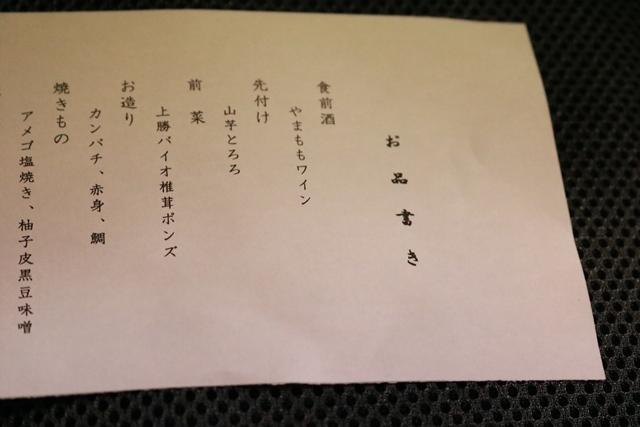 お品書き
食前酒
やまももワイン
先付け
山芋とろろ
前菜
上勝バイオ椎茸ポンズ
お造り
カンパチ、赤身、鯛
焼きもの
アメゴ塩焼き、柚子皮黒豆味噌